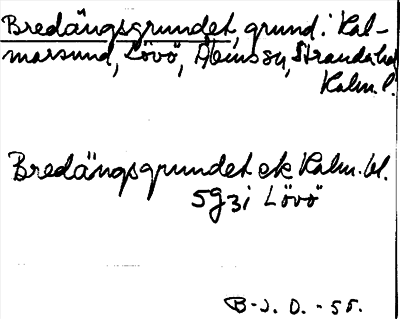 Bredängsgrundet, grund i Kal-
marsund, Lövö, Ålems sn, Stranda hd
Kalm. l.
Bredängsgrundet ek Kalm. bl.
5g3i Lövö
B-J. O. - 55.